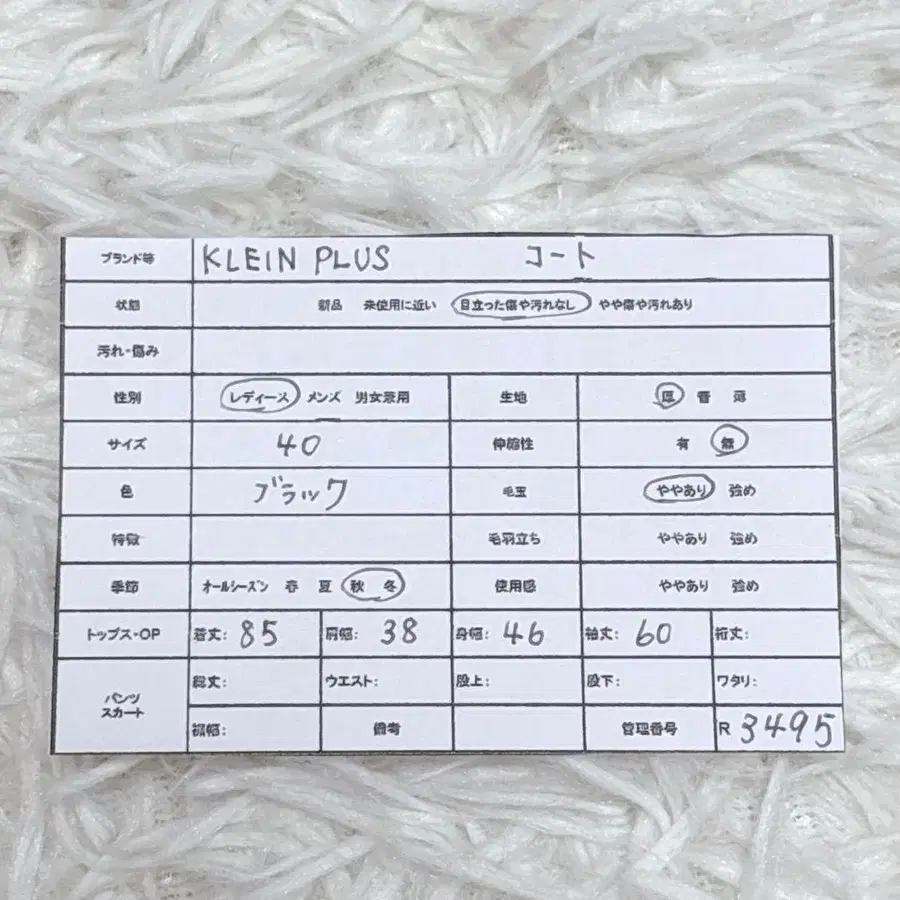 ブランド等 KLEIN PLUS コート
状態 新品 未使用に近い 目立った傷や汚れなし やや傷や汚れあり
汚れ・傷み
性別 レディース メンズ 男女兼用 生地 厚 普 薄
サイズ 40 伸縮性 有 無
色 ブラック 毛玉 ややあり 強め
特徴 毛羽立ち ややあり 強め
季節 オールシーズン 春 夏 秋 冬 使用感 ややあり 強め
トップス・OP 着丈: 85 肩幅: 38 身幅: 46 袖丈: 60 裄丈:
パンツ スカート 総丈: ウエスト: 股上: 股下: ワタリ:
裾幅: 備考 管理番号 R 3495